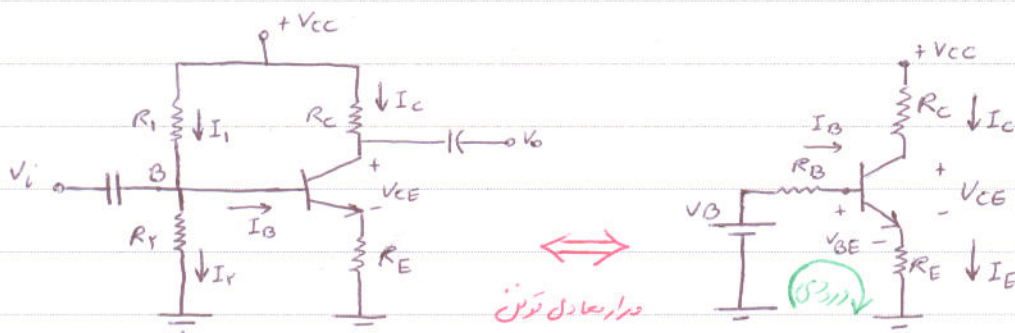 + VCC
R1
↓ I1
RC
↓ IC
Vo
Vi
B
+
VCE
-
IB
R۲
↓ I۲
RE
مدار معادل تونن
+ VCC
RC
↓ IC
IB
RB
VB
+
VBE
-
+
VCE
-
RE
↓ IE
ورودی